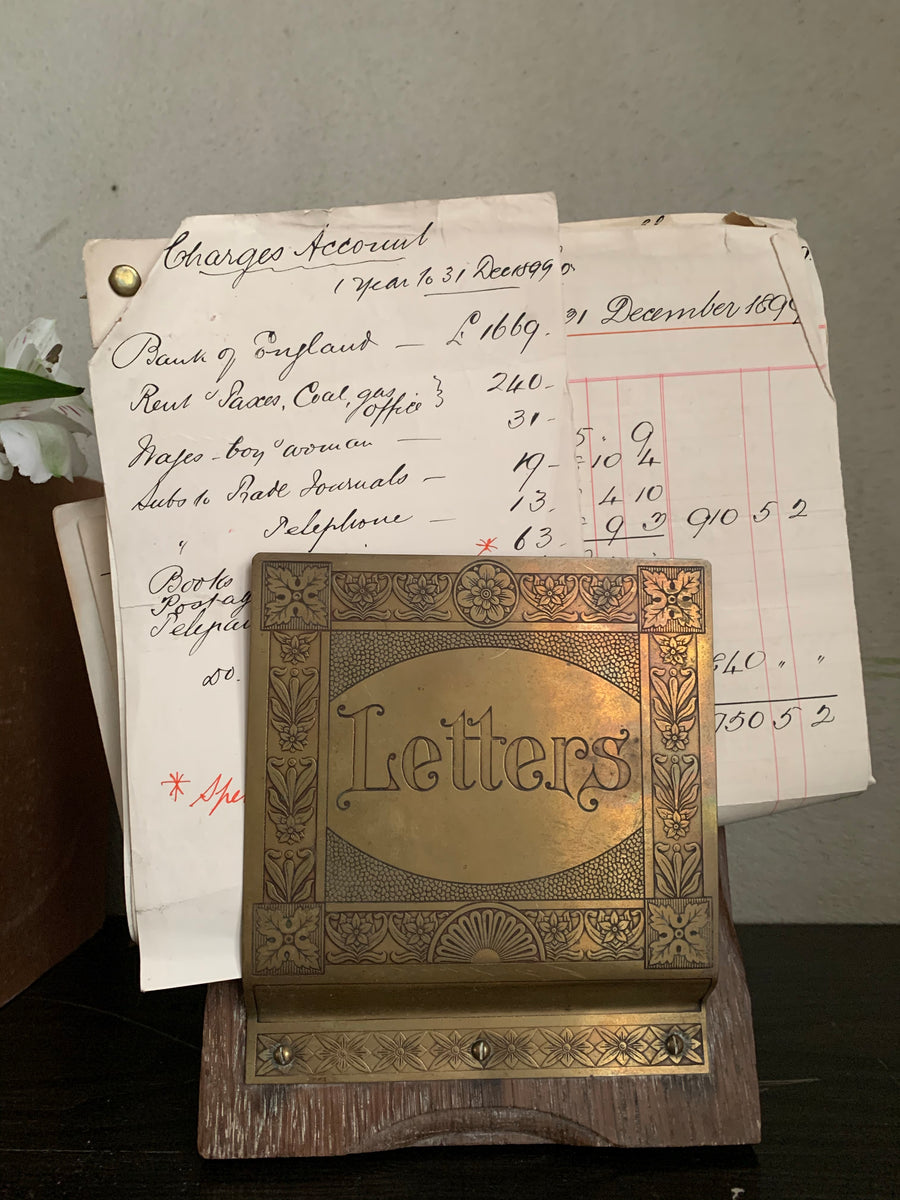 Charges Account
1 Year to 31 Dec 1899
Bank of England — £ 1669.
Rent & Taxes, Coal, gas, office } 240-
Wages - boy & woman — 31-
Subs to Trade Journals — 19-
" Telephone — 13.
* 63.
Books
Postag
Do.
* Spe
31 December 1899
5 . 9
10 4
4 10
9 3 910 5 2
840 " "
750 5 2
Letters